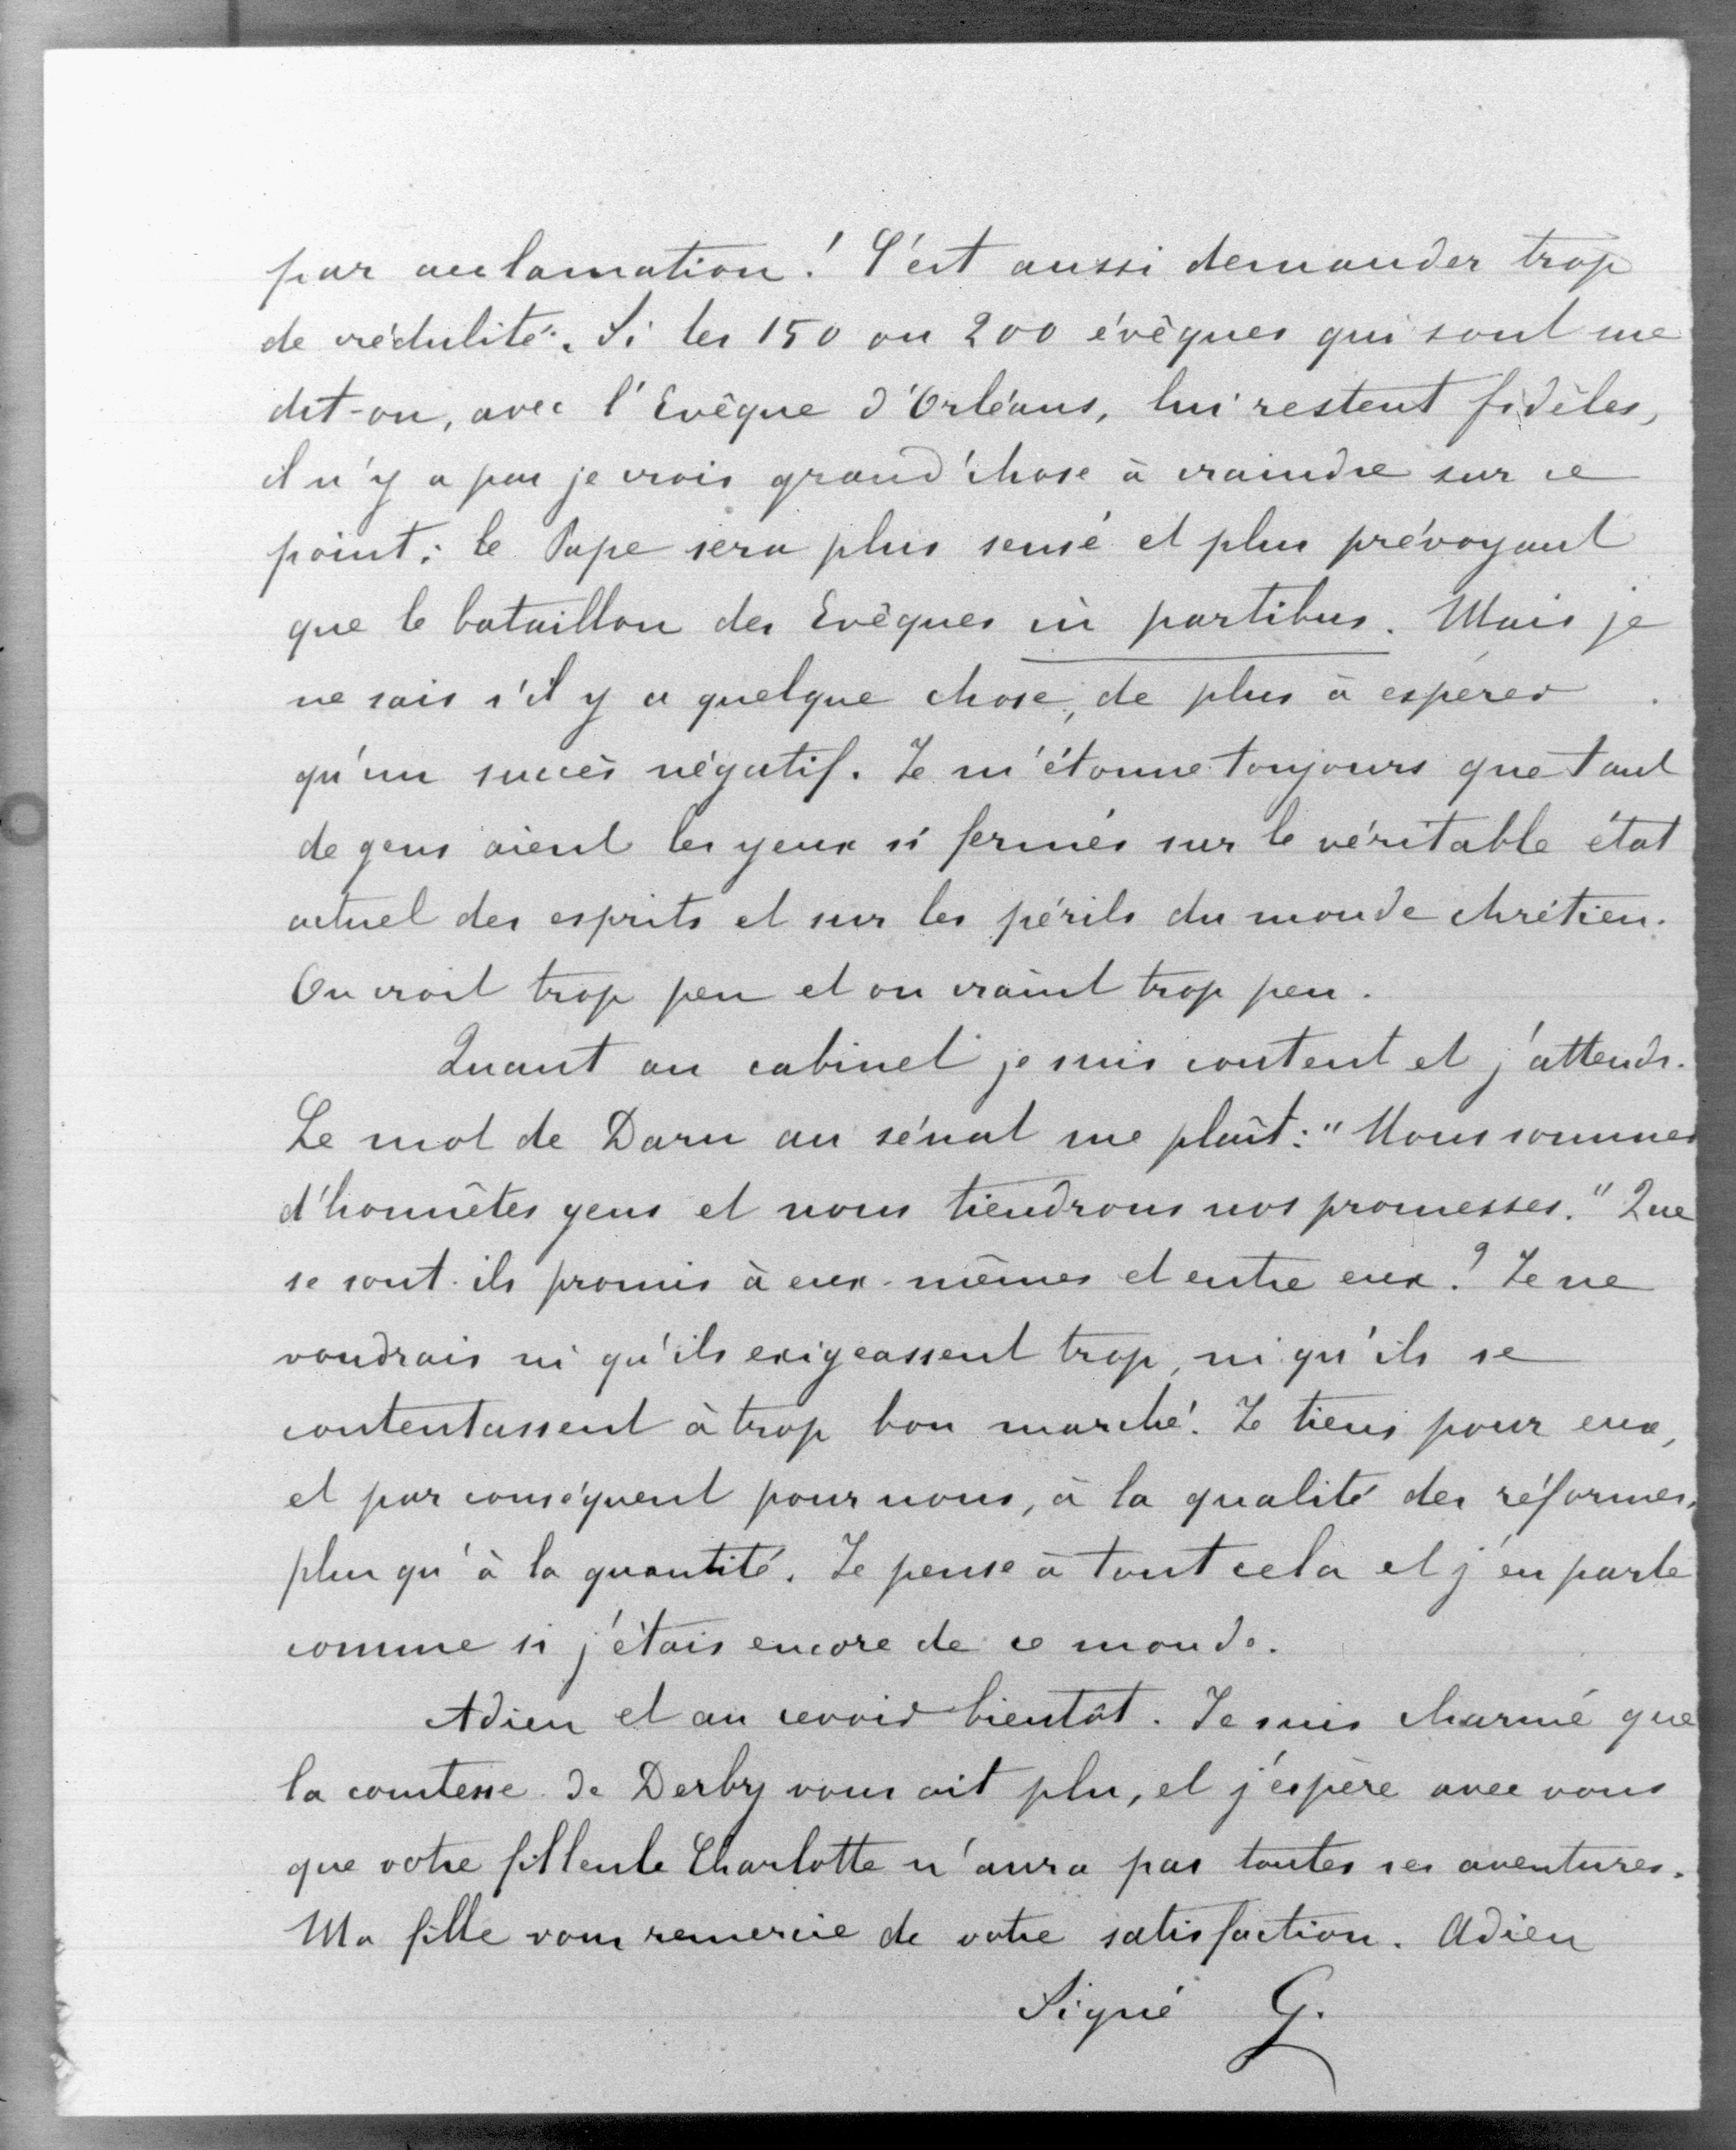 par acclamation! C'est aussi demander trop
de crédulité. Si les 150 ou 200 évêques qui sont me
dit-on, avec l'Evêque d'Orléans, lui restent fidèles,
il n'y a pas je crois grand'chose à craindre sur ce
point; le Pape sera plus sensé et plus prévoyant
que le bataillon des Evêques in partibus. Mais je
ne sais s'il y a quelque chose, de plus à espérer
qu'un succès négatif. Je m'étonne toujours que tant
de gens aient les yeux si fermés sur le véritable état
actuel des esprits et sur les périls du monde chrétien.
On croit trop peu et on craint trop peu.
Quant au cabinet je suis content et j'attends.
Le mot de Daru au sénat me plaît: "Nous sommes
d'honnêtes gens et nous tiendrons nos promesses." Que
se sont-ils promis à eux-mêmes et entre eux? Je ne
voudrais ni qu'ils exigeassent trop, ni qu'ils se
contentassent à trop bon marché. Je tiens pour eux,
et par conséquent pour nous, à la qualité des réformes,
plus qu'à la quantité. Je pense à tout cela et j'en parle
comme si j'étais encore de ce monde.
Adieu et au revoir bientôt. Je suis charmé que
la comtesse de Derby vous ait plu, et j'espère avec vous
que votre filleule Charlotte n'aura pas toutes ses aventures.
Ma fille vous remercie de votre satisfaction. Adieu
Signé G.